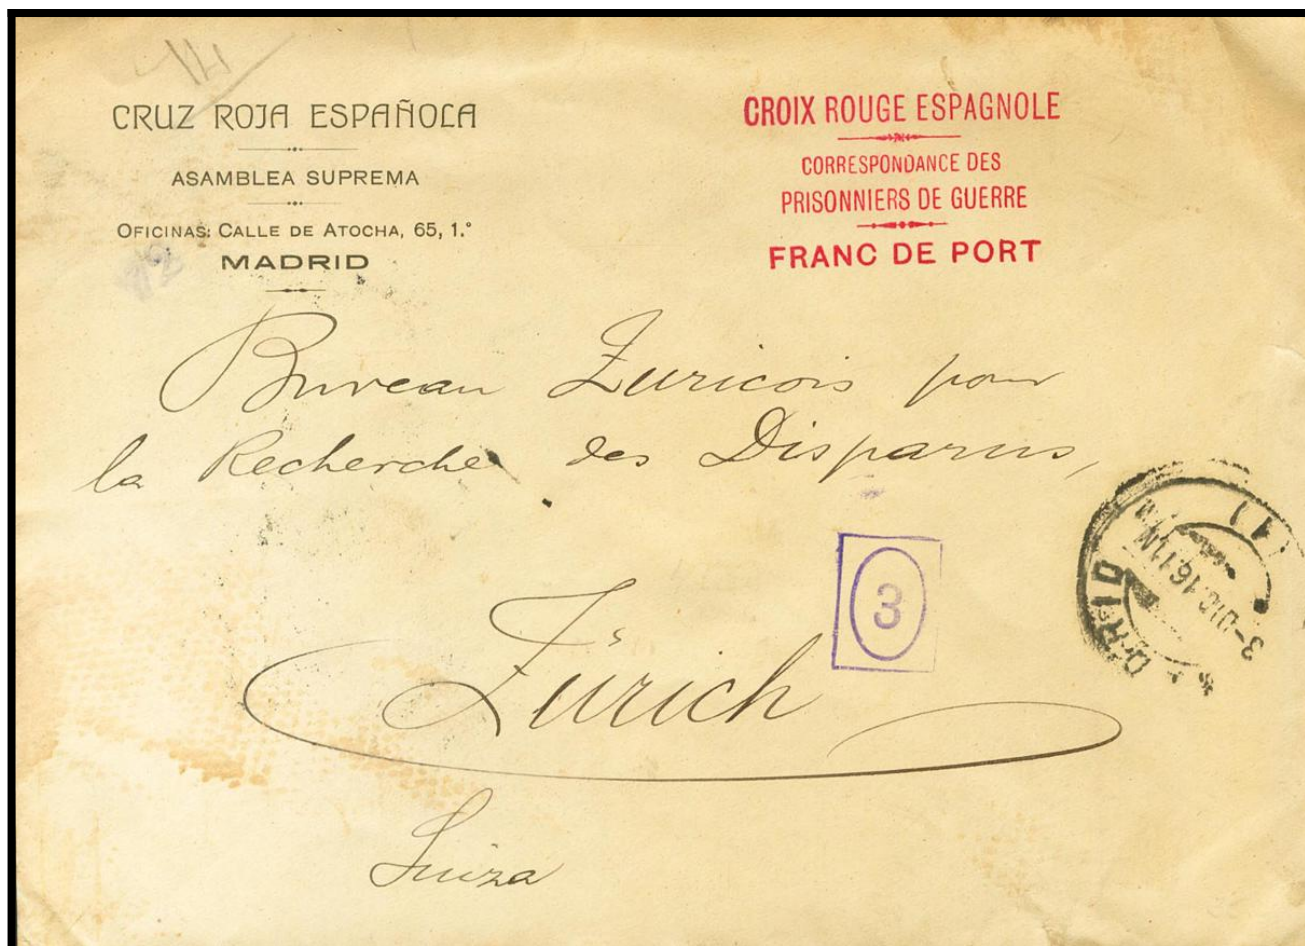 CRUZ ROJA ESPAÑOLA
ASAMBLEA SUPREMA
OFICINAS: CALLE DE ATOCHA, 65, 1.º
MADRID
CROIX ROUGE ESPAGNOLE
CORRESPONDANCE DES
PRISONNIERS DE GUERRE
FRANC DE PORT
Bureau Zuricois pour
la Recherche des Disparus,
Zürich
Suiza
3
3-DIC.16 11M